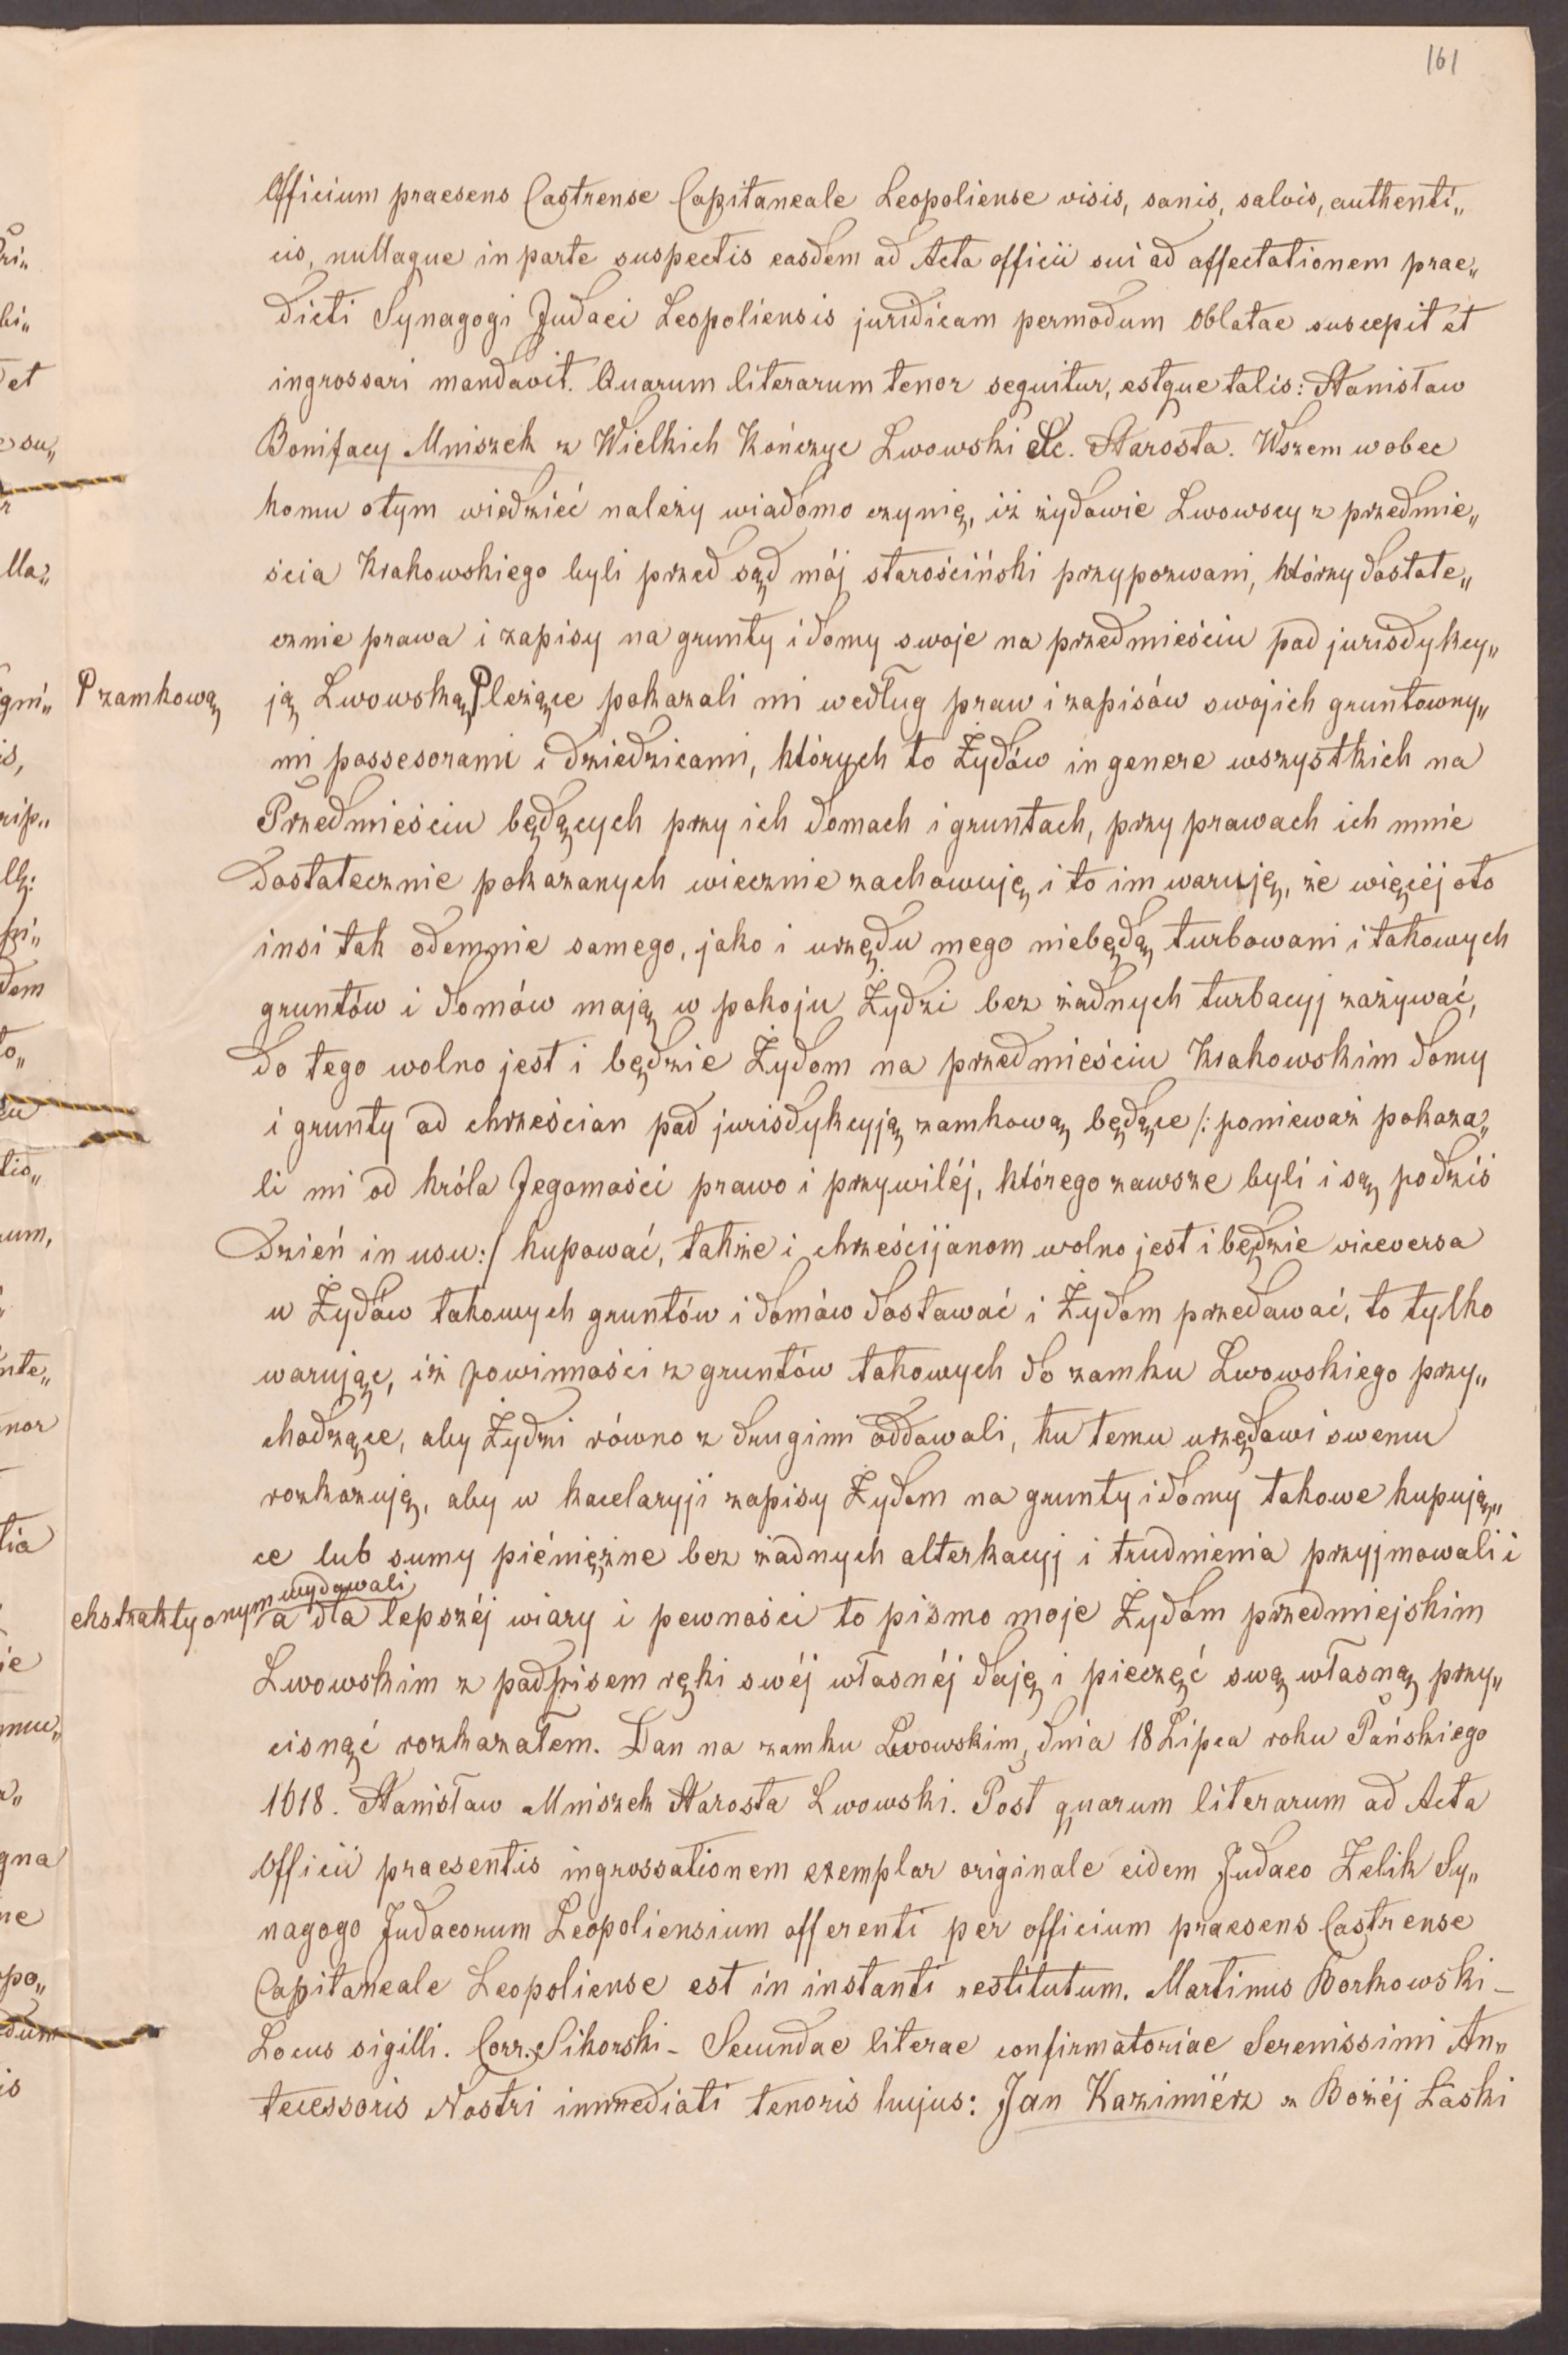 161
Officium praesens Castrense Capitaneale Leopoliense visis, sanis, salvis, authenti„
cis, nullaque in parte suspectis easdem ad Acta officii sui ad affectationem prae„
dicti Synagogi Judaei Leopoliensis juridicam permodum Oblatae suscepit et
ingrossari mandavit. Quarum literarum tenor sequitur, estque talis: Stanisław
Bonifacy Mniszek z Wielkich Kończyc Lwowski etc. Starosta. Wszem wobec
komu otym wiedzieć należy wiadomo czynię, iż żydowie Lwowscy z przedmie„
ścia Krakowskiego byli przed sąd mój starościński przypozwani, którzy dostate„
cznie prawa i zapisy na grunty i domy swoje na przedmieściu pod jurisdykcy„
Pzamkową
ją Lwowską P leżące pokazali mi według praw i zapisów swojich gruntowny„
mi possesorami i dziedzicami, których to Żydów in genere wszystkich na
Przedmieściu będących przy ich domach i gruntach, przy prawach ich mnie
dostatecznie pokazanych wiecznie zachowuję i to im waruję, że więcéj oto
insi tak odemnie samego, jako i urzędu mego niebędą turbowani i takowych
gruntów i domów mają w pokoju Żydzi bez żadnych turbacyj zażywać,
do tego wolno jest i będzie Żydom na przedmieściu Krakowskim domy
i grunty od chrześcian pod jurisdykcyją zamkową będące /: ponieważ pokaza„
li mi od króla Jegomości prawo i przywiléj, którego zawsze byli i są podziś
dzień in usu:/ kupować, także i chrześcijanom wolno jest i będzie viceversa
u Żydów takowych gruntów i domów dostawać i Żydom przedawać, to tylko
warując, iż powinności z gruntów takowych do zamku Lwowskiego przy„
chodzące, aby Żydzi równo z drugimi oddawali, ku temu urzędowi swemu
rozkazuję, aby w kacelaryji zapisy Żydom na grunty i domy takowe kupują„
ce lub sumy piéniężne bez żadnych alterkacyj i trudnienia przyjmowali i
ekstrakty onym wydawali
a dla lepszéj wiary i pewności to pismo moje Żydom przedmiejskim
Lwowskim z podpisem ręki swéj własnéj daję i pieczęć swą własną przy„
cisnąć rozkazałem. Dan na zamku Lwowskim, dnia 18 Lipca roku Pańskiego
1618. Stanisław Mniszek Starosta Lwowski. Post quarum literarum ad Acta
Officii praesentis ingrossationem exemplar originale eidem Judaeo Zelik Sy„
nagogo Judaeorum Leopoliensium offerenti per officium praesens Castrense
Capitaneale Leopoliense est in instanti restitutum. Martinus Borkowski –
Locus sigilli. Corr. Sikorski – Secundae literae confirmatoriae Serenissimi An„
tecessoris Nostri immediati tenoris hujus: Jan Kazimiérz z Bożéj Łaski